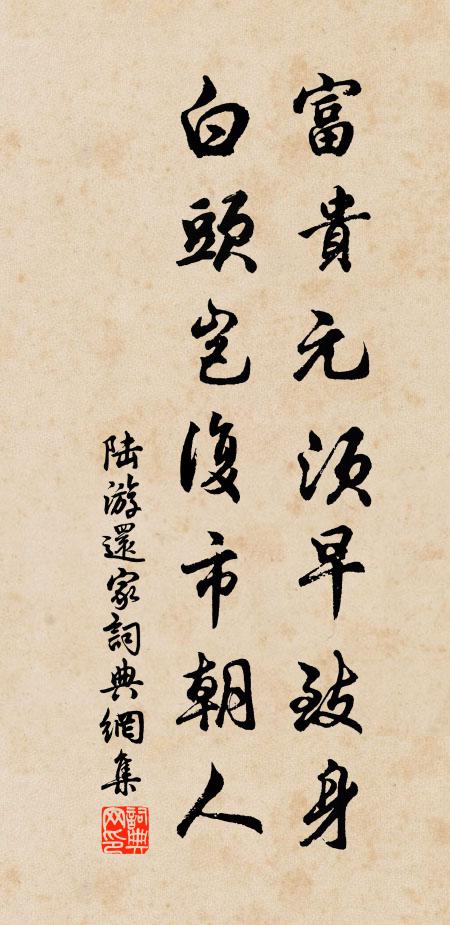 富貴元須早致身
白頭豈復市朝人
陆游還家詞典網集
詞典网印